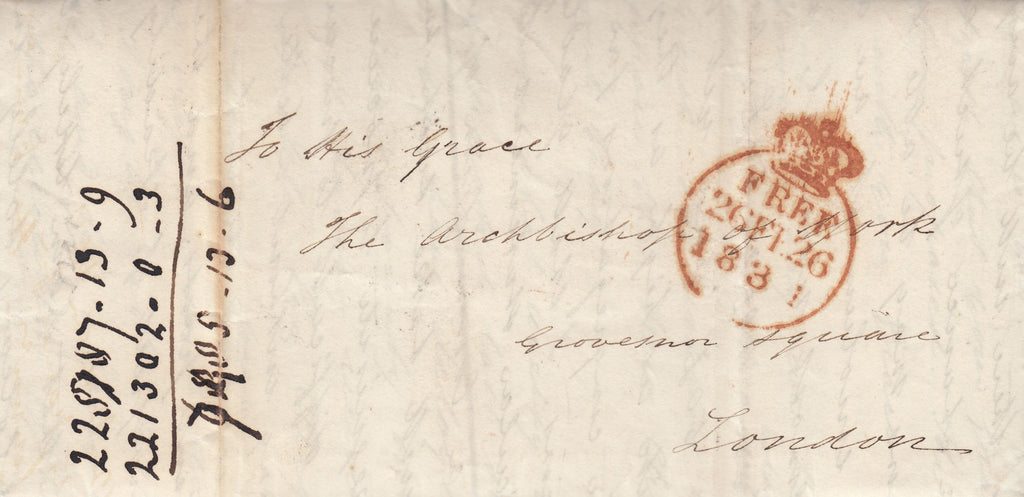 To His Grace
The Archbishop of York
Grovesnor Square
London
FREE
26 26
1831
- 13 - 9
221302 - 0 - 3
5 - 13 - 6